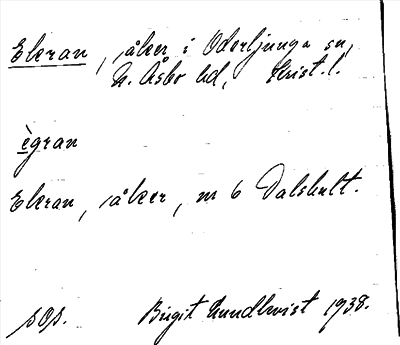 Ekran, åker i Oderljunga sn,
N. Åsbo hd, Krist.l.
ègran
Ekran, åker, n 6 Dalshult.
sOp. Birgit Lundkvist 1938.